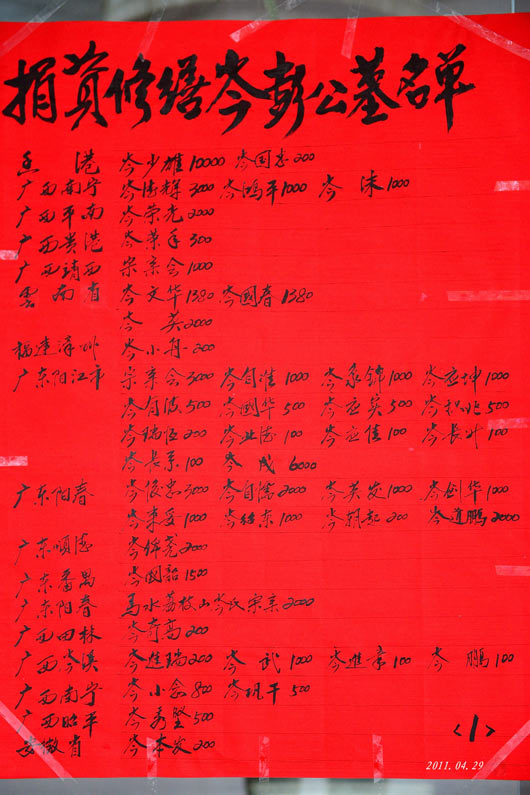 捐资修缮岑彭公墓名单
香港 岑少雄10000 岑国忠200
广西南宁 岑德辉3000 岑鸿平1000 岑沫1000
广西平南 岑荣光2000
广西贵港 岑荣 300
广西靖西 宗亲会1000
云南省 岑文华1380 岑國春1380
岑英2000
福建漳州 岑小舟200
广东阳江市 宗亲会3000 岑自淮1000 岑永锦1000 岑应坤1000
岑自波500 岑國华500 岑应英500 岑 兆500
岑瑞恆200 岑业德100 岑应佳100 岑長 100
岑长系100 岑成6000
广东阳春 岑俊忠3000 岑自儒2000 岑英发1000 岑创华1000
岑 1000 岑绍东1000 岑朝起200 岑道鹏2000
广东順德 岑 尧2000
广东番禺 岑國韶1500
广东阳春 马水荔枝山岑氏宗亲2000
广西田林 岑奇高200
广西岑溪 岑建瑞200 岑武1000 岑進章100 岑鹏100
广西南宁 岑小念800 岑 500
广西昭平 岑秀坚500
安徽省 岑本发200
<1>
2011.04.29